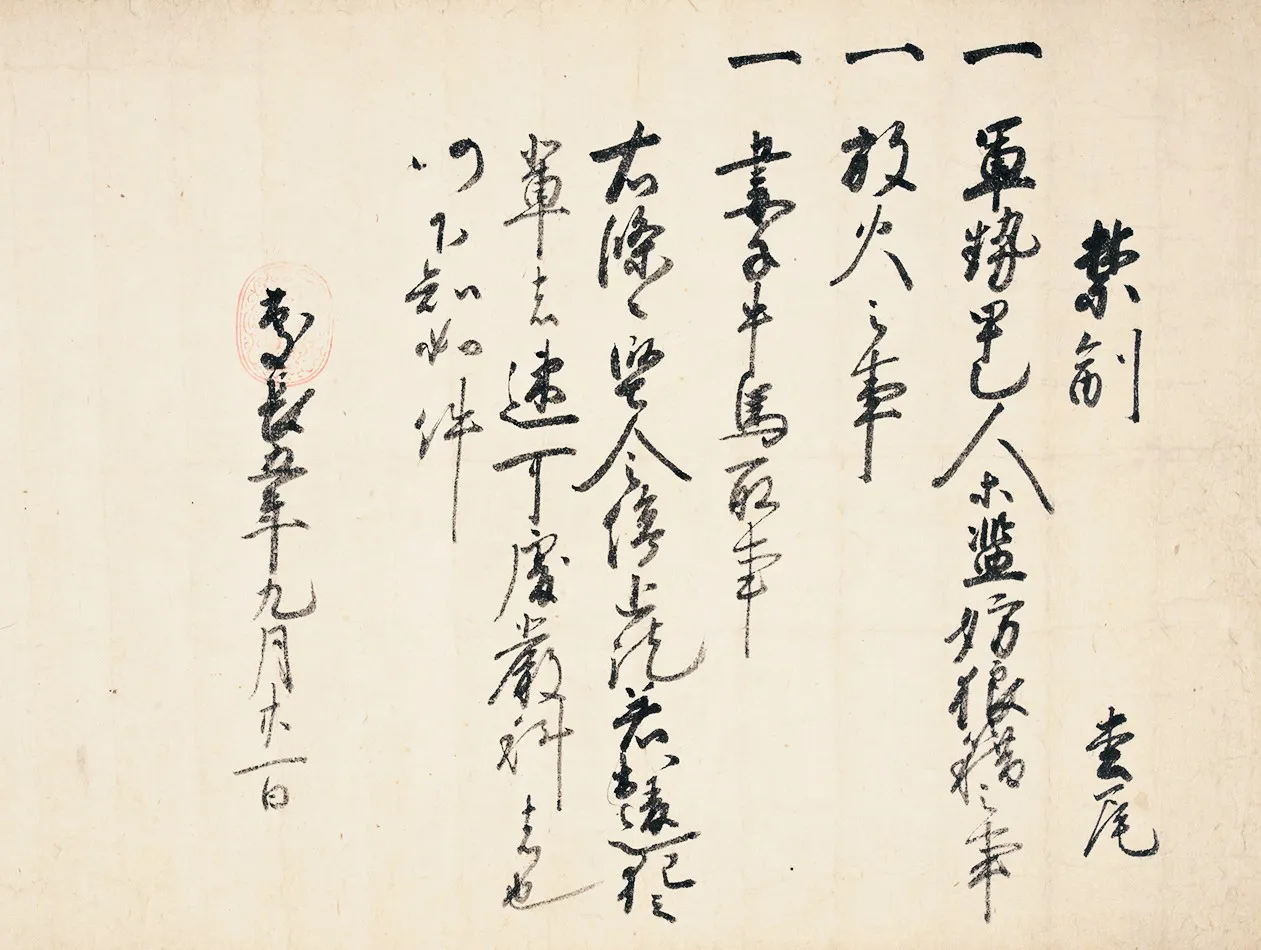 禁制 尾
一 軍勢甲乙人等濫妨狼藉之事
一 放火之事
一 妻子牛馬取事
右條々堅令停止訖若違犯之
輩者速可處嚴科者也
仍下知如件
慶長五年九月廿一日